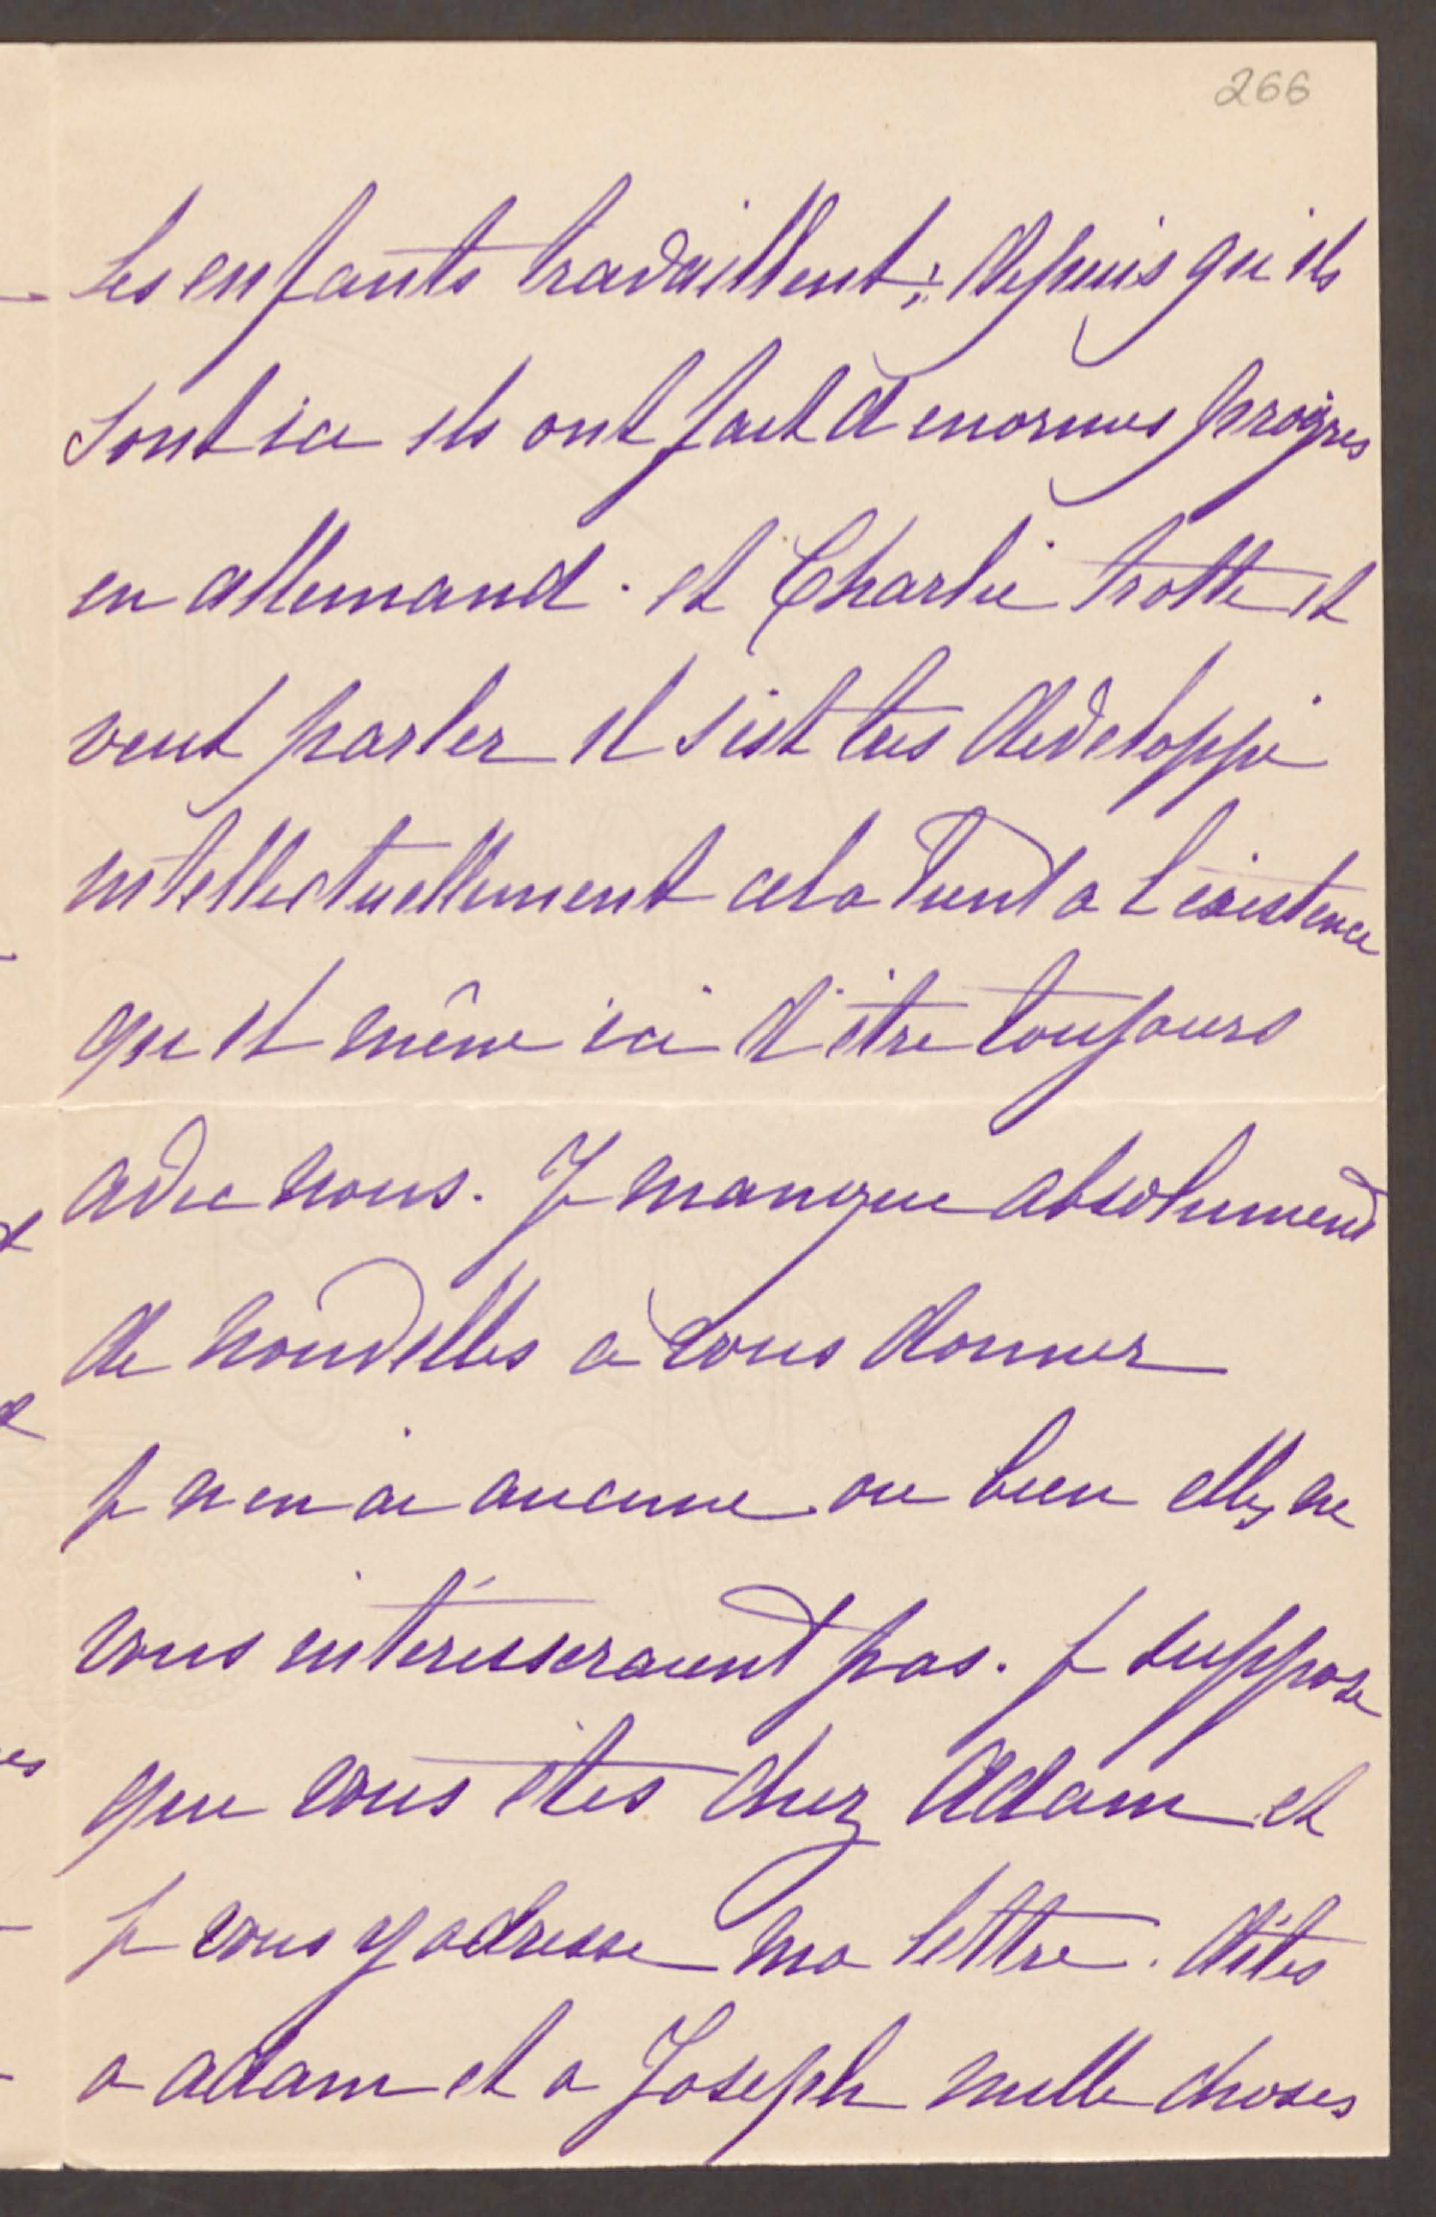 266
Les enfants travaillent; depuis qu ils
sont ici ils ont fait d enormes progres
en allemand. et Charlie trotte et
veut parler il s'est tres developpé
intellectuellement cela tient a l existence
qu il mène ici d'être toujours
avec nous. Je manque absolument
de nouvelles a vous donner
je n en ai aucune ou bien elles ne
vous intéresseraient pas. je suppose
que vous êtes chez Adam et
je vous y adresse ma lettre. dites
a adam et a Joseph mille choses